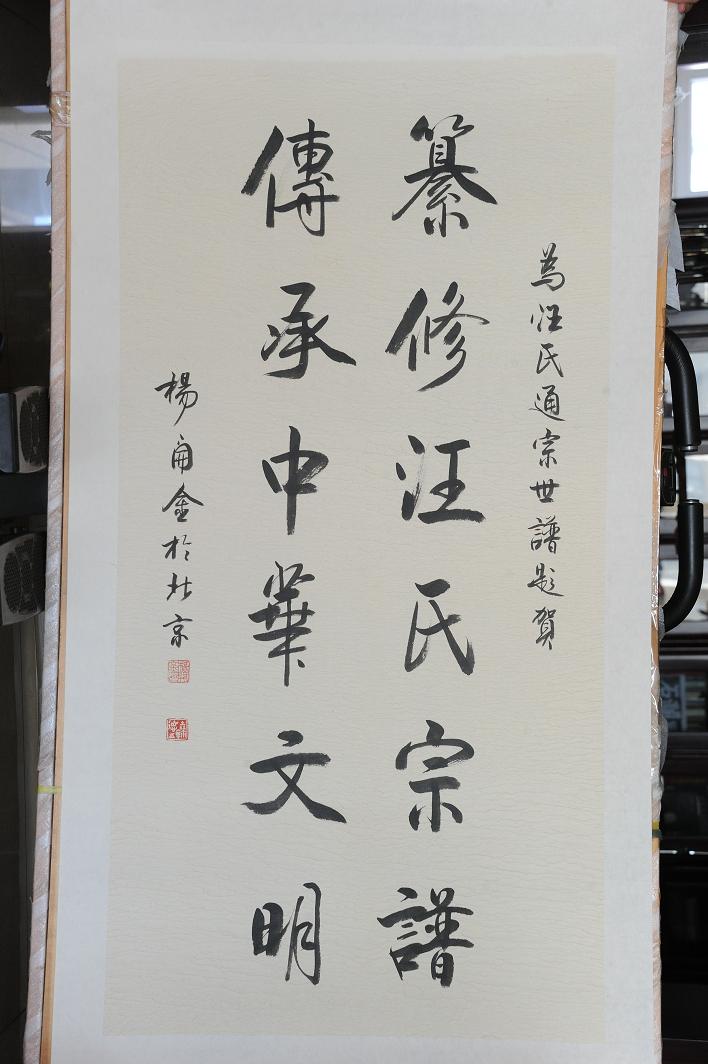 為汪氏通宗世譜題賀
纂修汪氏宗譜
傳承中華文明
楊金於北京